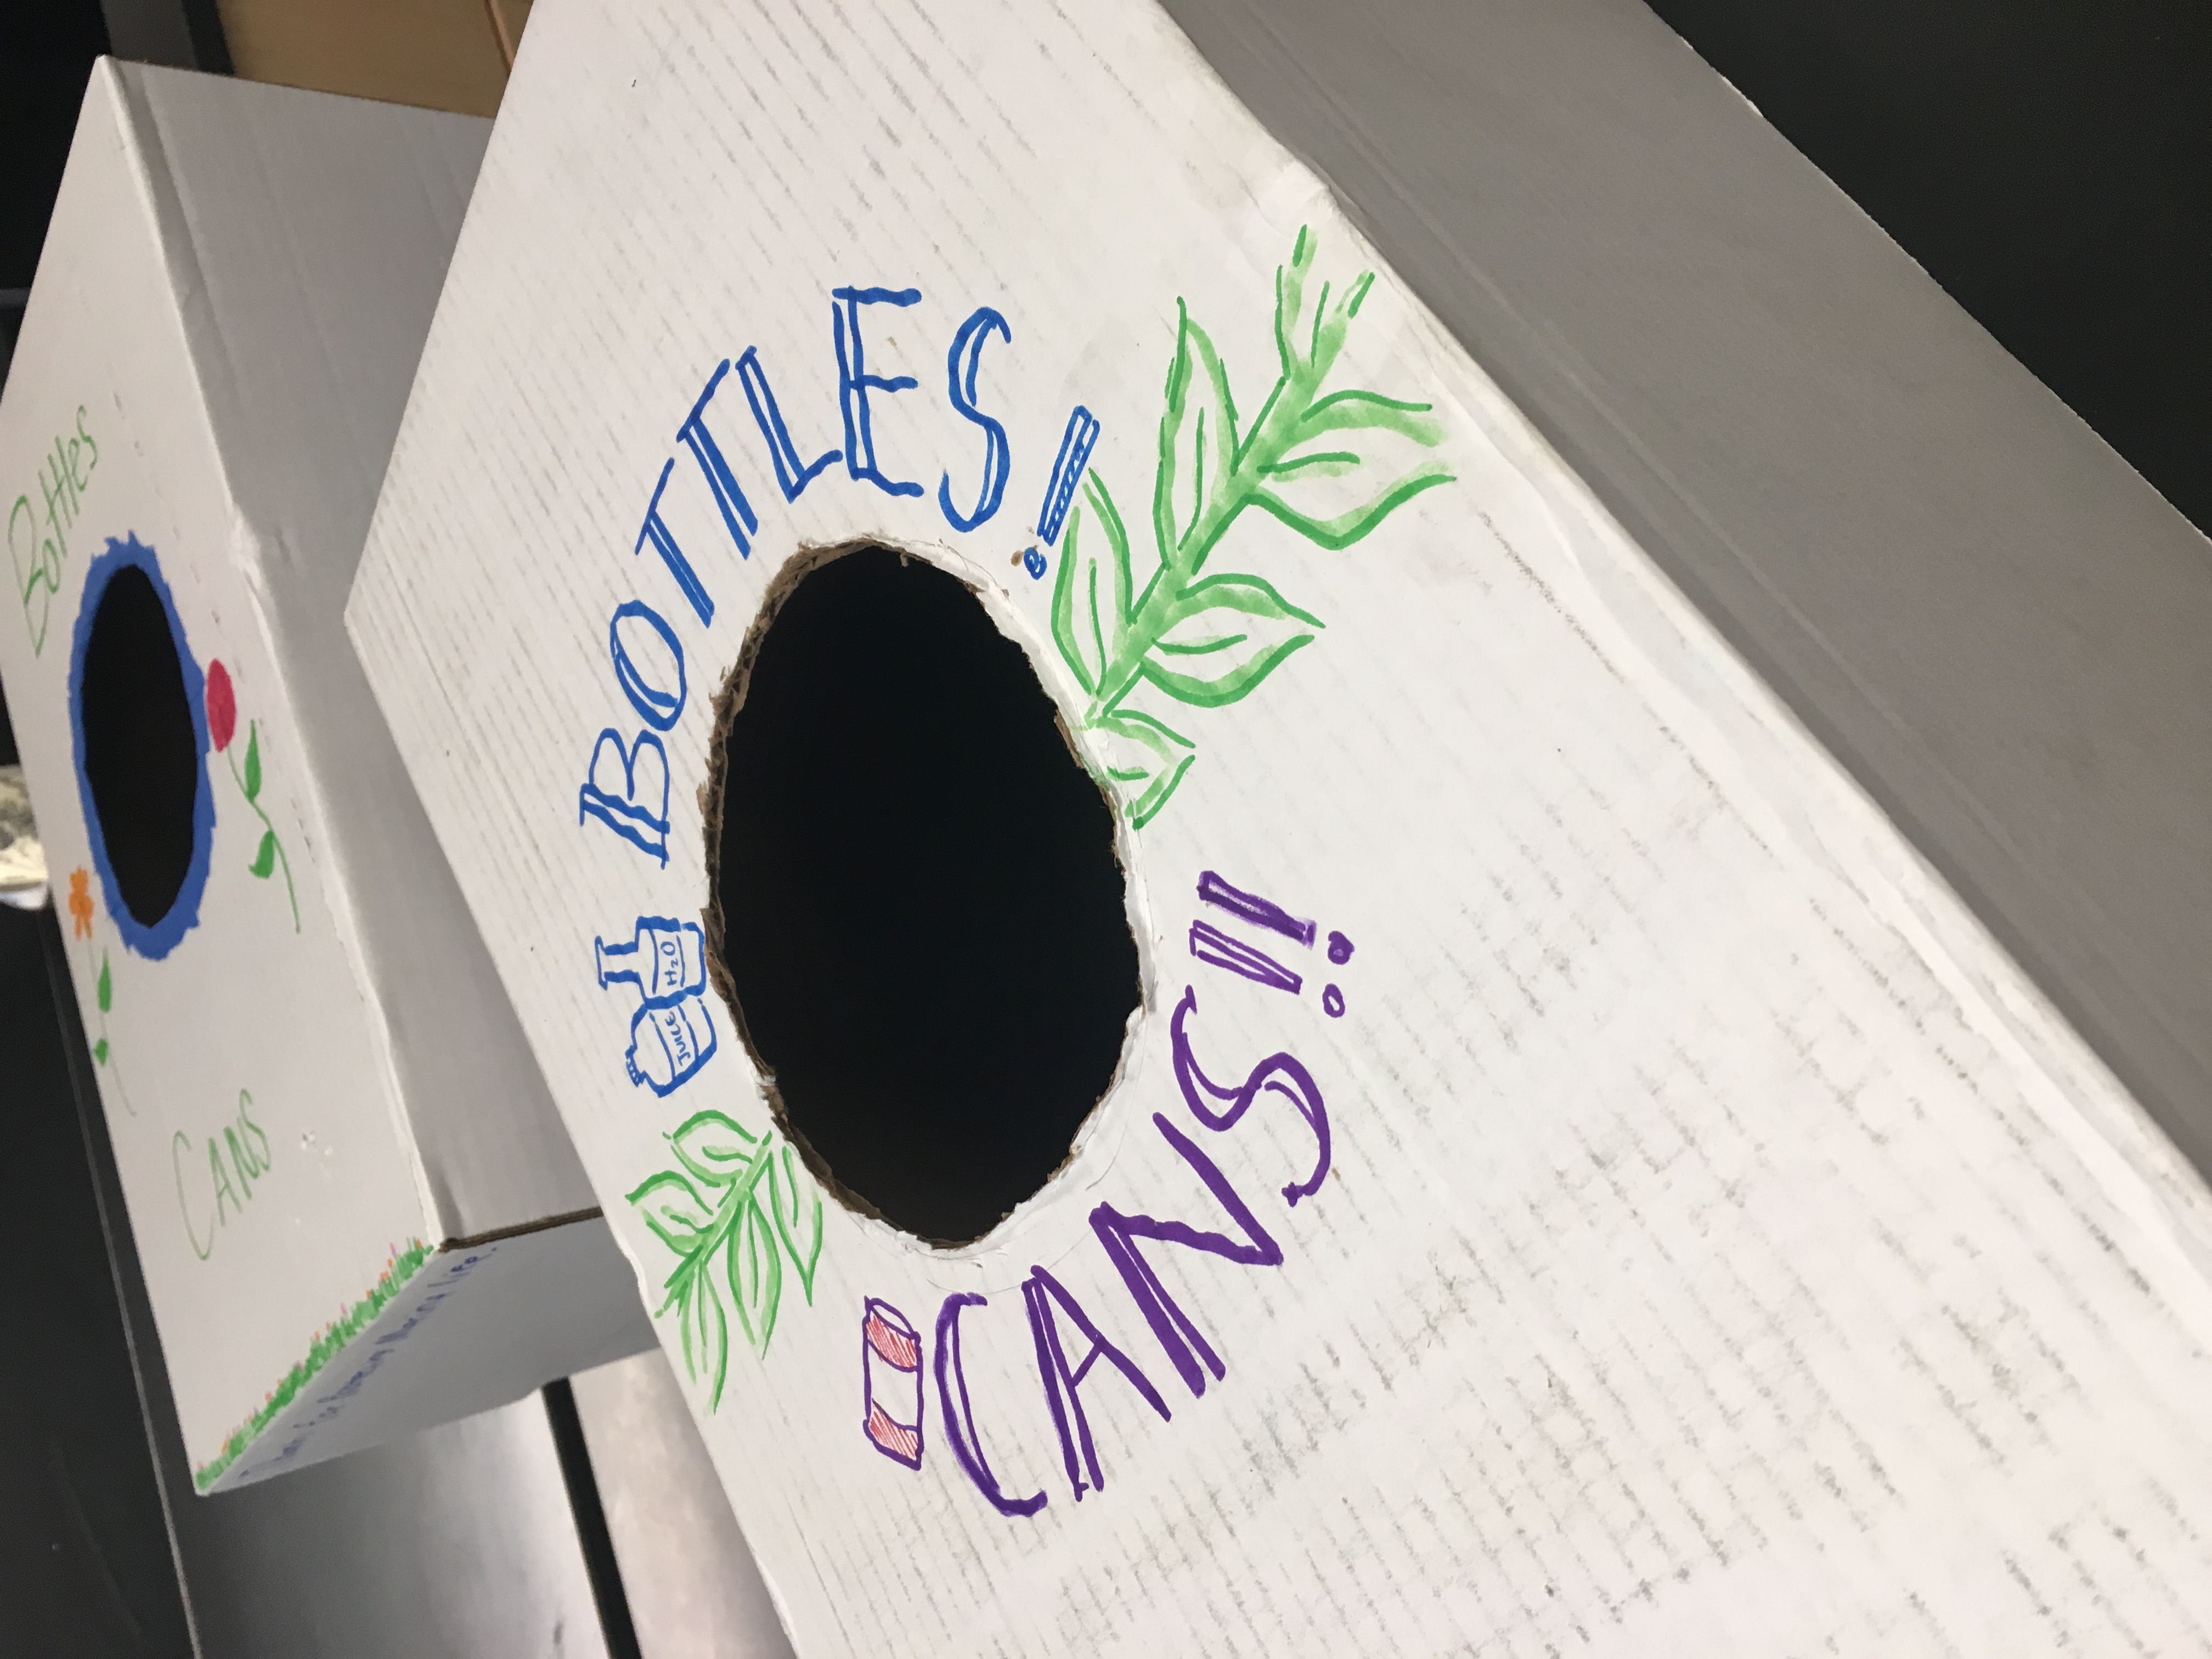 Bottles
CANS
Thanks for Protecting Marine Life.
JUICE
H₂O
BOTTLES!
CANS!!